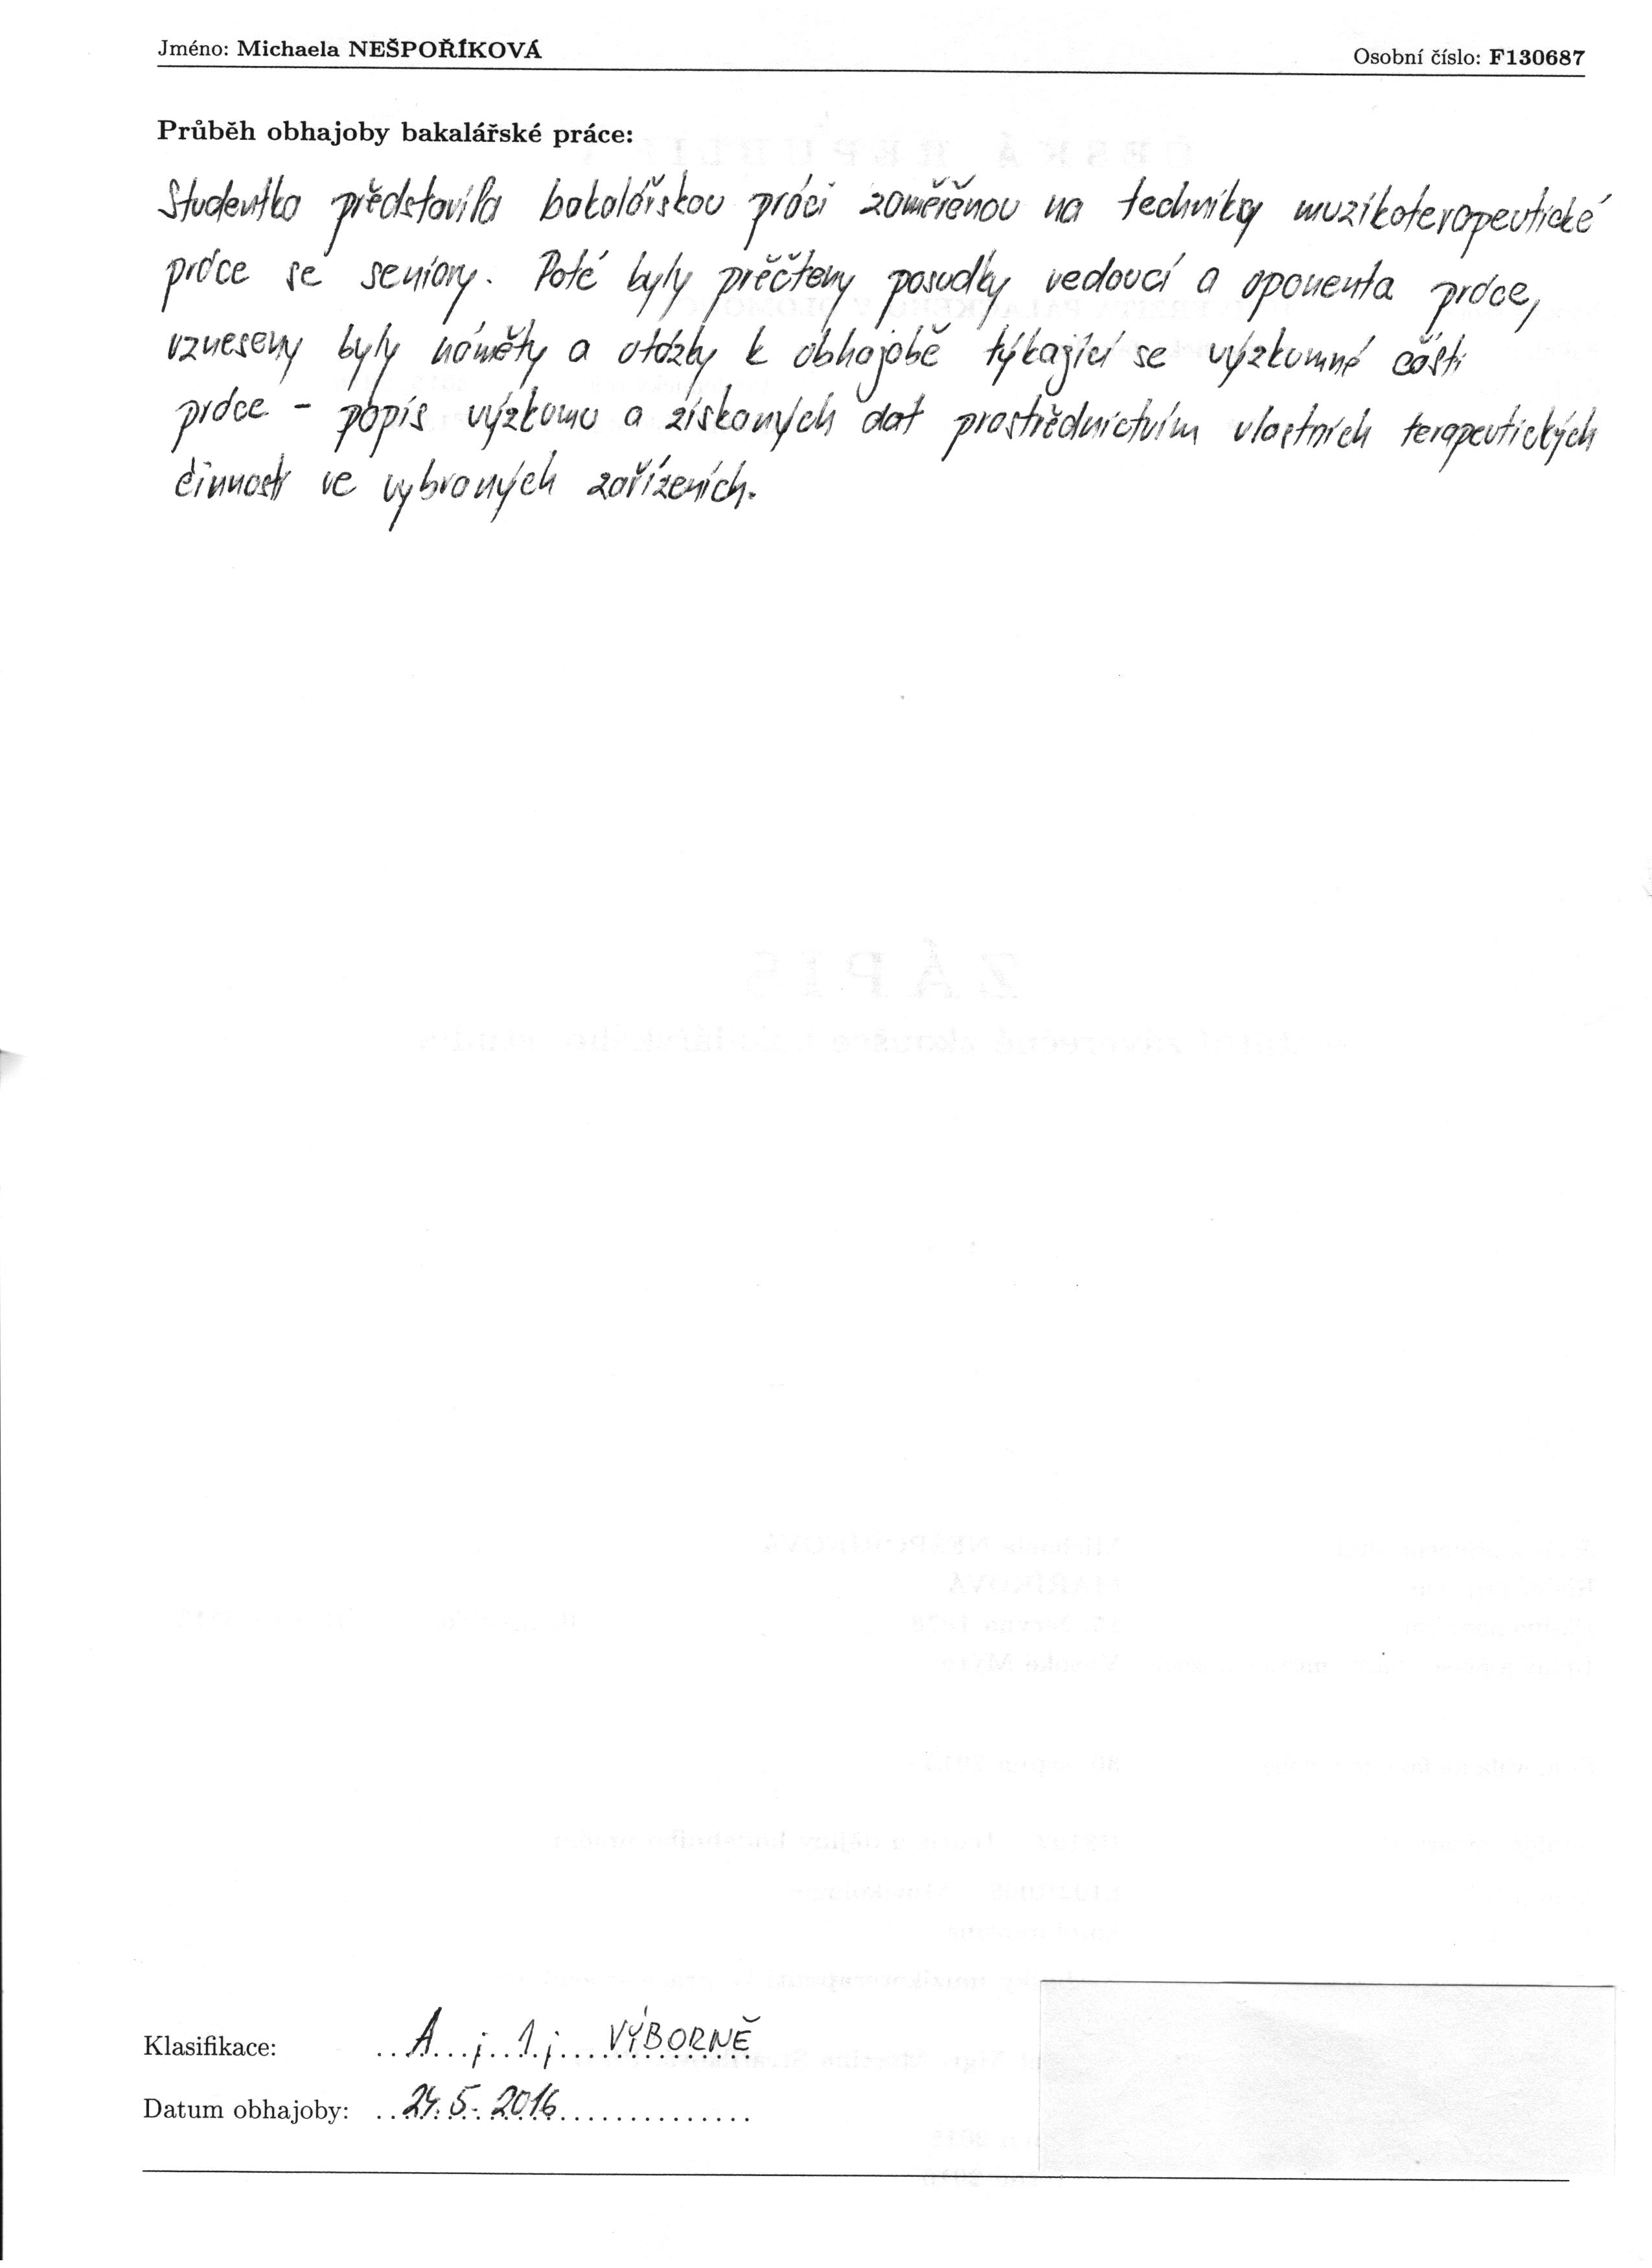 Jméno: Michaela NEŠPOŘÍKOVÁ Osobní číslo: F130687
Průběh obhajoby bakalářské práce:
Studentka představila bakalářskou práci zaměřěnou na techniky muzikoterapeutické
práce se seniory. Poté byly přečteny posudky vedoucí a oponenta práce,
vzneseny byly náměty a otázky k obhajobě týkající se výzkumné části
práce - popis výzkumu a získaných dat prostřednictvím vlastních terapeutických
činností ve vybraných zařízeních.
Klasifikace: A ; 1 ; VÝBORNĚ
Datum obhajoby: 24.5.2016